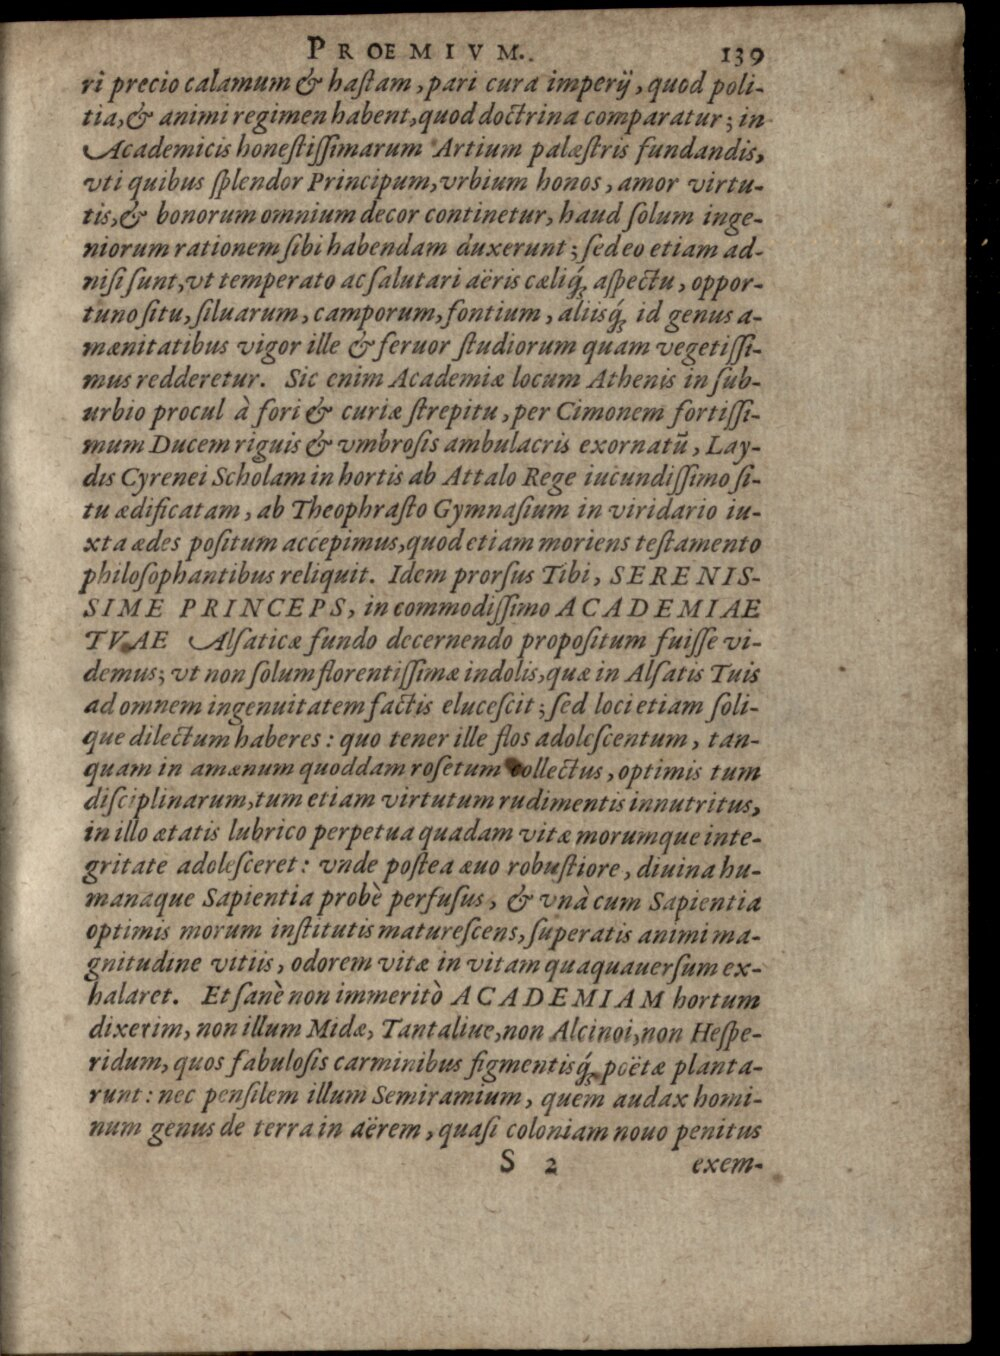 PROEMIVM. 139
ri precio calamum & haſtam, pari cura imperij, quod poli-
tia, & animi regimen habent, quod doctrina comparatur; in
Academicis honeſtiſſimarum Artium palæſtris fundandis,
vti quibus ſplendor Principum, vrbium honos, amor virtu-
tis, & bonorum omnium decor continetur, haud ſolum inge-
niorum rationem ſibi habendam duxerunt; ſed eo etiam ad-
niſi ſunt, vt temperato ac ſalutari aëris cæliq́; aſpectu, oppor-
tuno ſitu, ſiluarum, camporum, fontium, aliisq́; id genus a-
mænitatibus vigor ille & feruor ſtudiorum quam vegetiſſi-
mus redderetur. Sic enim Academiæ locum Athenis in ſub-
urbio procul à fori & curiæ ſtrepitu, per Cimonem fortiſſi-
mum Ducem riguis & vmbroſis ambulacris exornatū, Lay-
dis Cyrenei Scholam in hortis ab Attalo Rege iucundiſſimo ſi-
tu ædificatam, ab Theophraſto Gymnaſium in viridario iu-
xta ædes poſitum accepimus, quod etiam moriens teſtamento
philoſophantibus reliquit. Idem prorſus Tibi, SERENIS-
SIME PRINCEPS, in commodiſſimo ACADEMIAE
TVAE Alſaticæ fundo decernendo propoſitum fuiſſe vi-
demus; vt non ſolum florentiſſimæ indolis, quæ in Alſatis Tuis
ad omnem ingenuitatem factis eluceſcit; ſed loci etiam ſoli-
que dilectum haberes: quo tener ille flos adoleſcentum, tan-
quam in amænum quoddam roſetum collectus, optimis tum
diſciplinarum, tum etiam virtutum rudimentis innutritus,
in illo ætatis lubrico perpetua quadam vitæ morumque inte-
gritate adoleſceret: vnde poſtea æuo robuſtiore, diuina hu-
manaque Sapientia probè perfuſus, & vnà cum Sapientia
optimis morum inſtitutis matureſcens, ſuperatis animi ma-
gnitudine vitiis, odorem vitæ in vitam quaquauerſum ex-
halaret. Et ſanè non immeritò ACADEMIAM hortum
dixerim, non illum Midæ, Tantaliue, non Alcinoi, non Heſpe-
ridum, quos fabuloſis carminibus figmentisq́; poëtæ planta-
runt: nec penſilem illum Semiramium, quem audax homi-
num genus de terra in aërem, quaſi coloniam nouo penitus
S 2 exem-